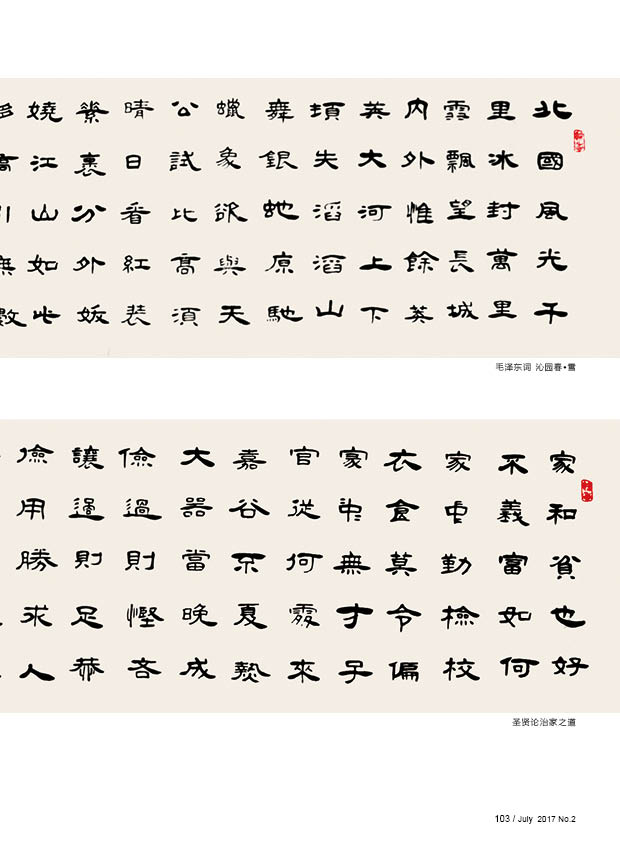 北國風光千
里冰封萬里
雪飄望長城
内外惟餘莽
莽大河上下
頓失滔滔山
舞銀虵原馳
蠟象欲與天
公試比高須
晴日看紅裝
素裹分外妖
嬈江山如此
多高引無數
毛泽东词 沁园春•雪
家和貧也好
不義富如何
家中勤檢校
衣食莫令偏
家中無才子
官從何處來
嘉谷不夏熟
大器當晚成
儉過則慳吝
讓過則足恭
儉用勝求人
圣贤论治家之道
103 / July 2017 No.2